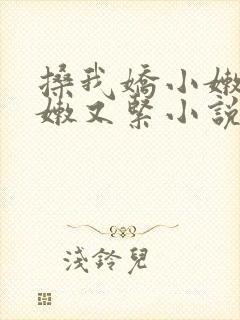 搡我嬌小嫩
嫩又緊小說
淺鈴兒